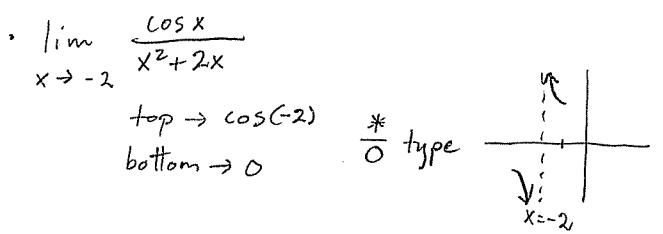 • lim cos x / x² + 2x
x → -2
top → cos(-2)
bottom → 0
* / 0 type
x = -2